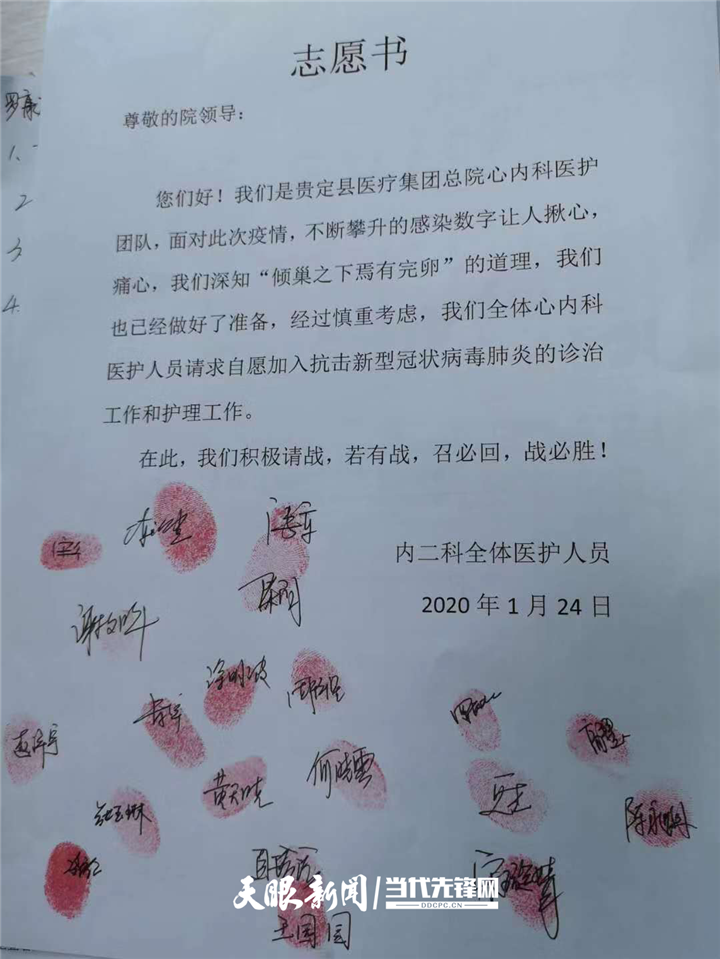 志愿书
尊敬的院领导：
您们好！我们是贵定县医疗集团总院心内科医护
团队，面对此次疫情，不断攀升的感染数字让人揪心，
痛心，我们深知“倾巢之下焉有完卵”的道理，我们
也已经做好了准备，经过慎重考虑，我们全体心内科
医护人员请求自愿加入抗击新型冠状病毒肺炎的诊治
工作和护理工作。
在此，我们积极请战，若有战，召必回，战必胜！
内二科全体医护人员
2020年1月24日
1、
2
3
4.
何晓雲
黄天晓
王园园
天眼新闻 当代先锋网
DDCPC.CN